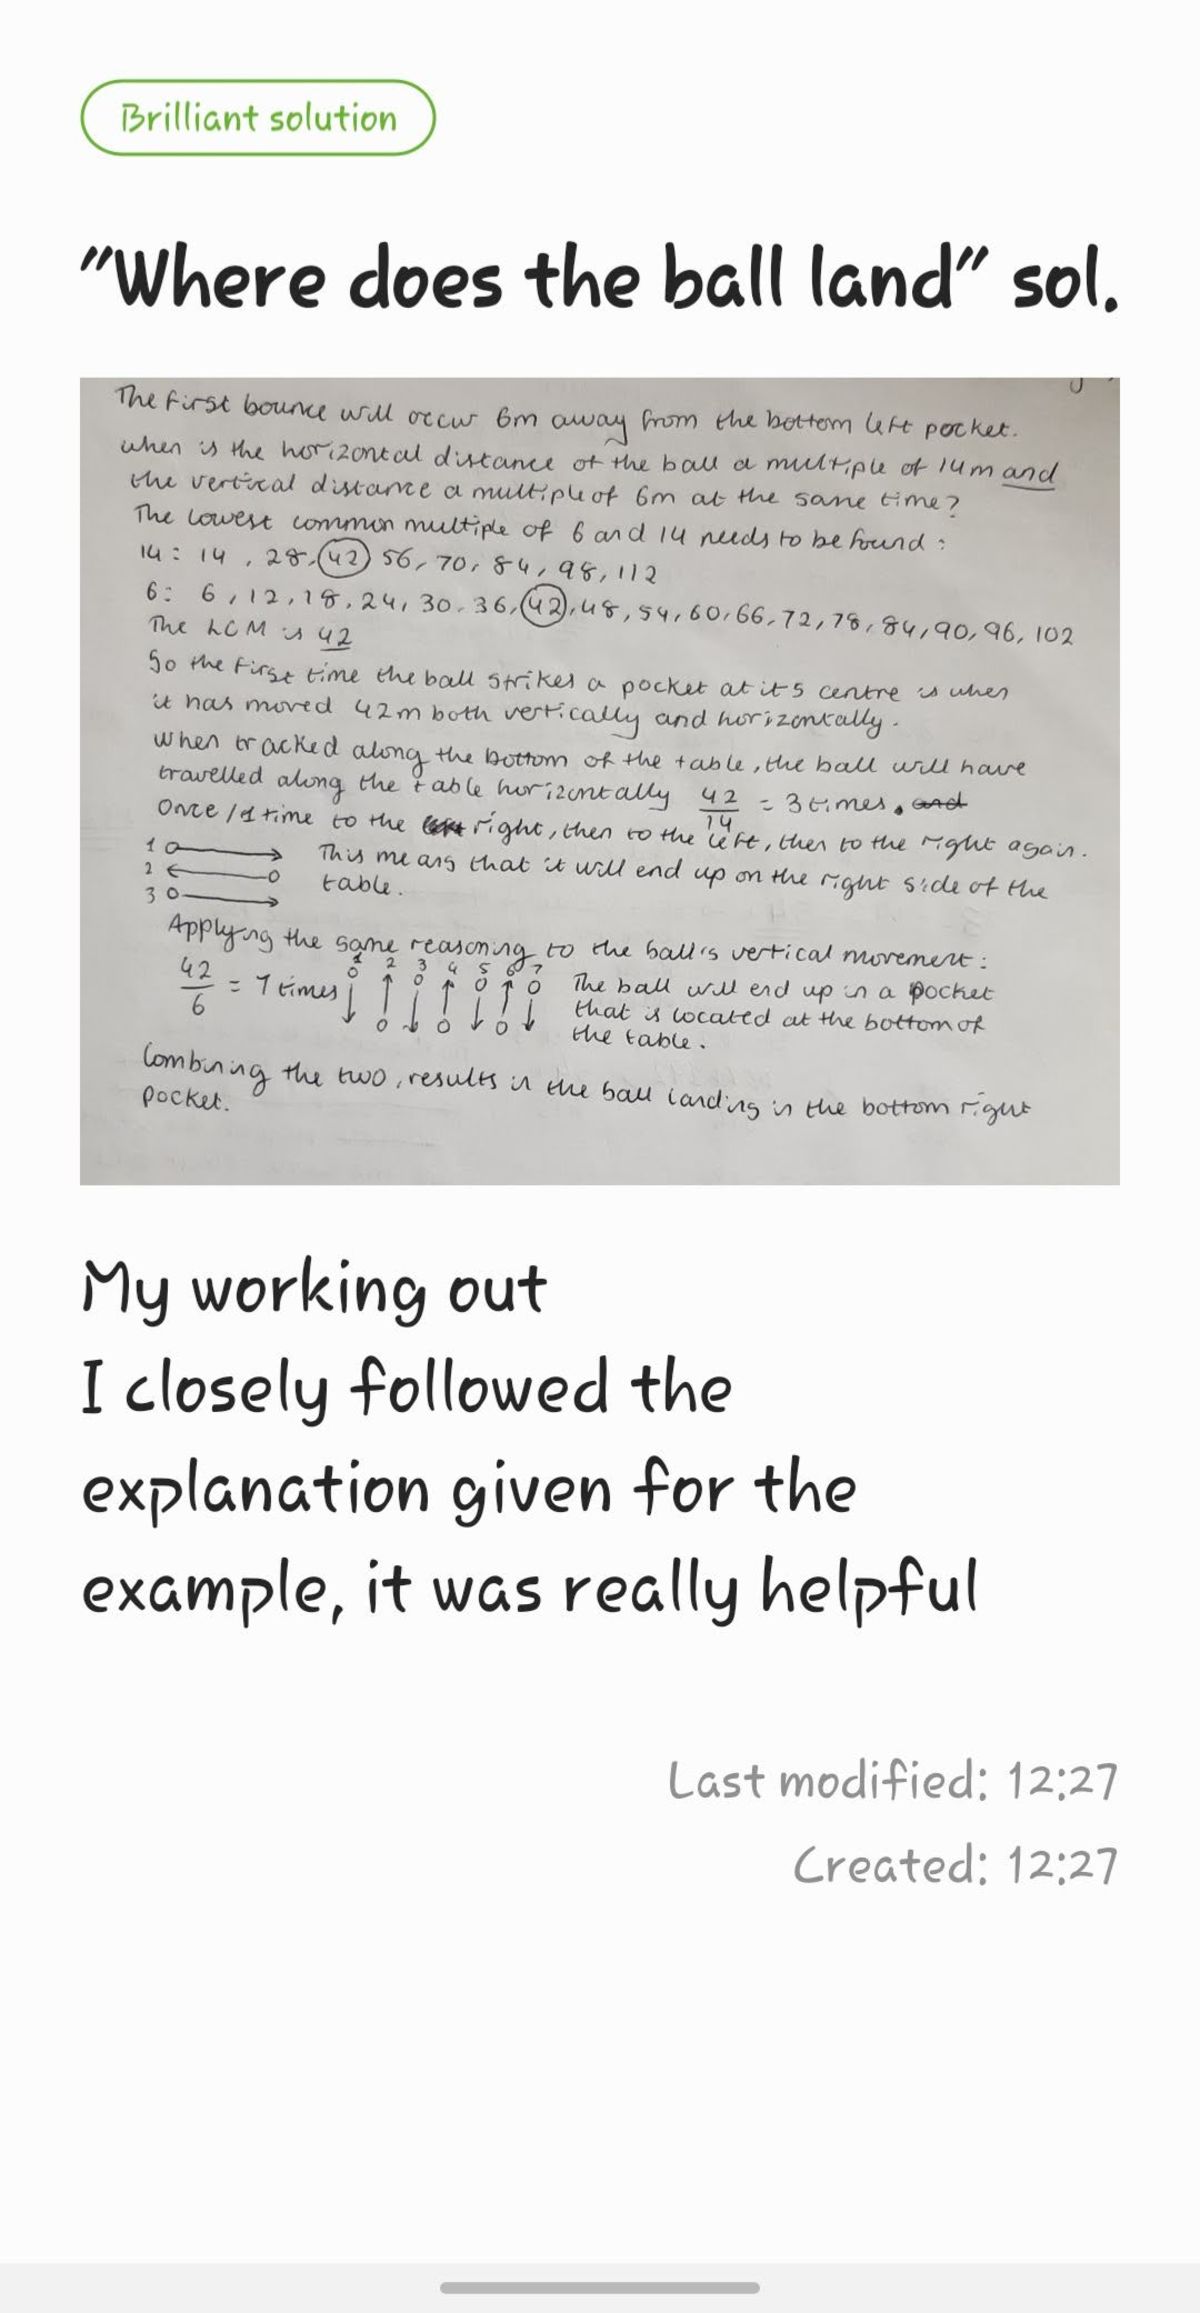 Brilliant solution
"Where does the ball land" sol.
The first bounce will occur 6m away from the bottom left pocket.
When is the horizontal distance of the ball a multiple of 14m and
the vertical distance a multiple of 6m at the same time?
The lowest common multiple of 6 and 14 needs to be found:
14: 14, 28, 42 56, 70, 84, 98, 112
6: 6, 12, 18, 24, 30, 36, 42, 48, 54, 60, 66, 72, 78, 84, 90, 96, 102
The LCM is 42
So the first time the ball strikes a pocket at its centre is when
it has moved 42m both vertically and horizontally.
When tracked along the bottom of the table, the ball will have
travelled along the table horizontally 42/14 = 3 times. and
Once/1 time to the left right, then to the left, then to the right again.
1
2
3
This means that it will end up on the right side of the
table.
Applying the same reasoning to the ball's vertical movement:
42/6 = 7 times
1 2 3 4 5 6 7
The ball will end up in a pocket
that is located at the bottom of
the table.
Combining the two, results in the ball landing in the bottom right
pocket.
My working out
I closely followed the
explanation given for the
example, it was really helpful
Last modified: 12:27
Created: 12:27